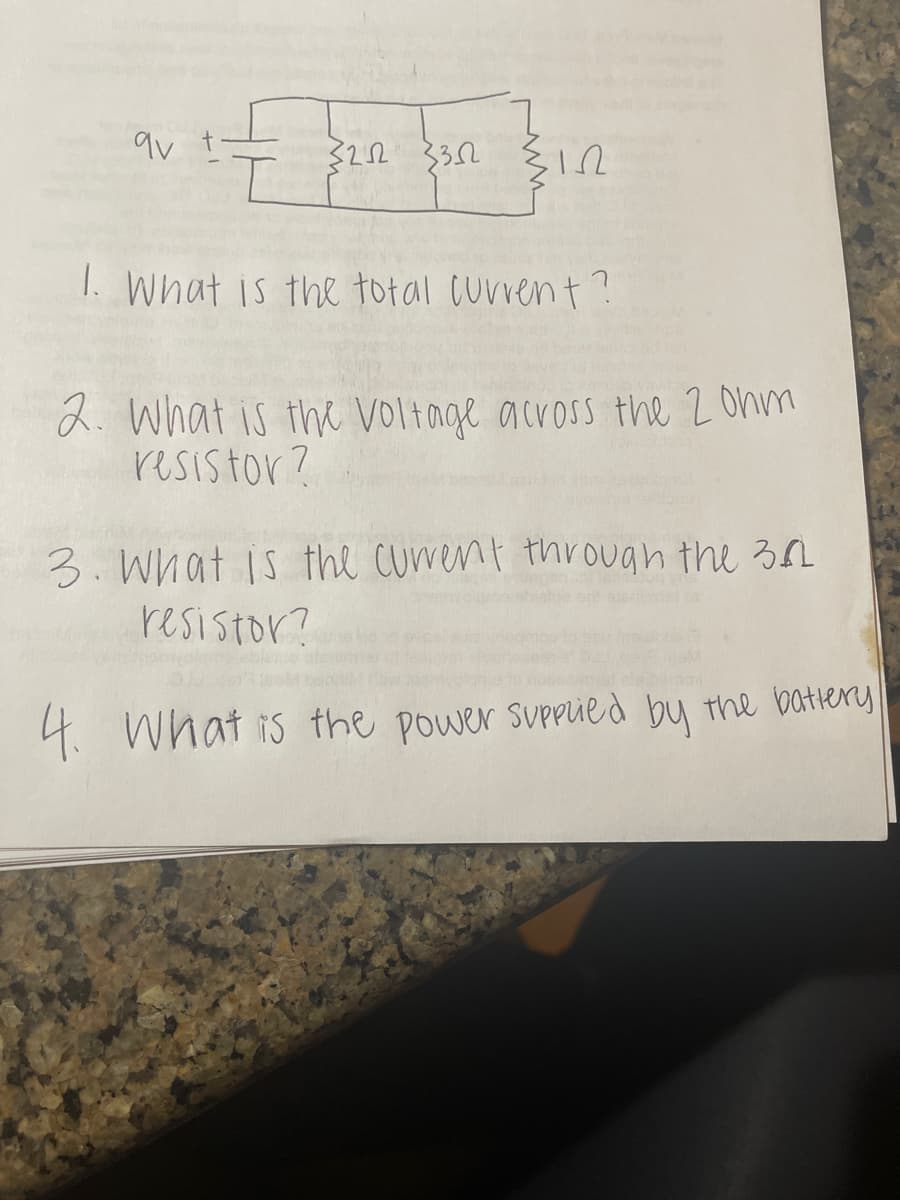 9V + - 2Ω 3Ω 1Ω
1. What is the total current?
2. What is the voltage across the 2 Ohm
resistor?
3. What is the current through the 3Ω
resistor?
4. What is the power supplied by the battery